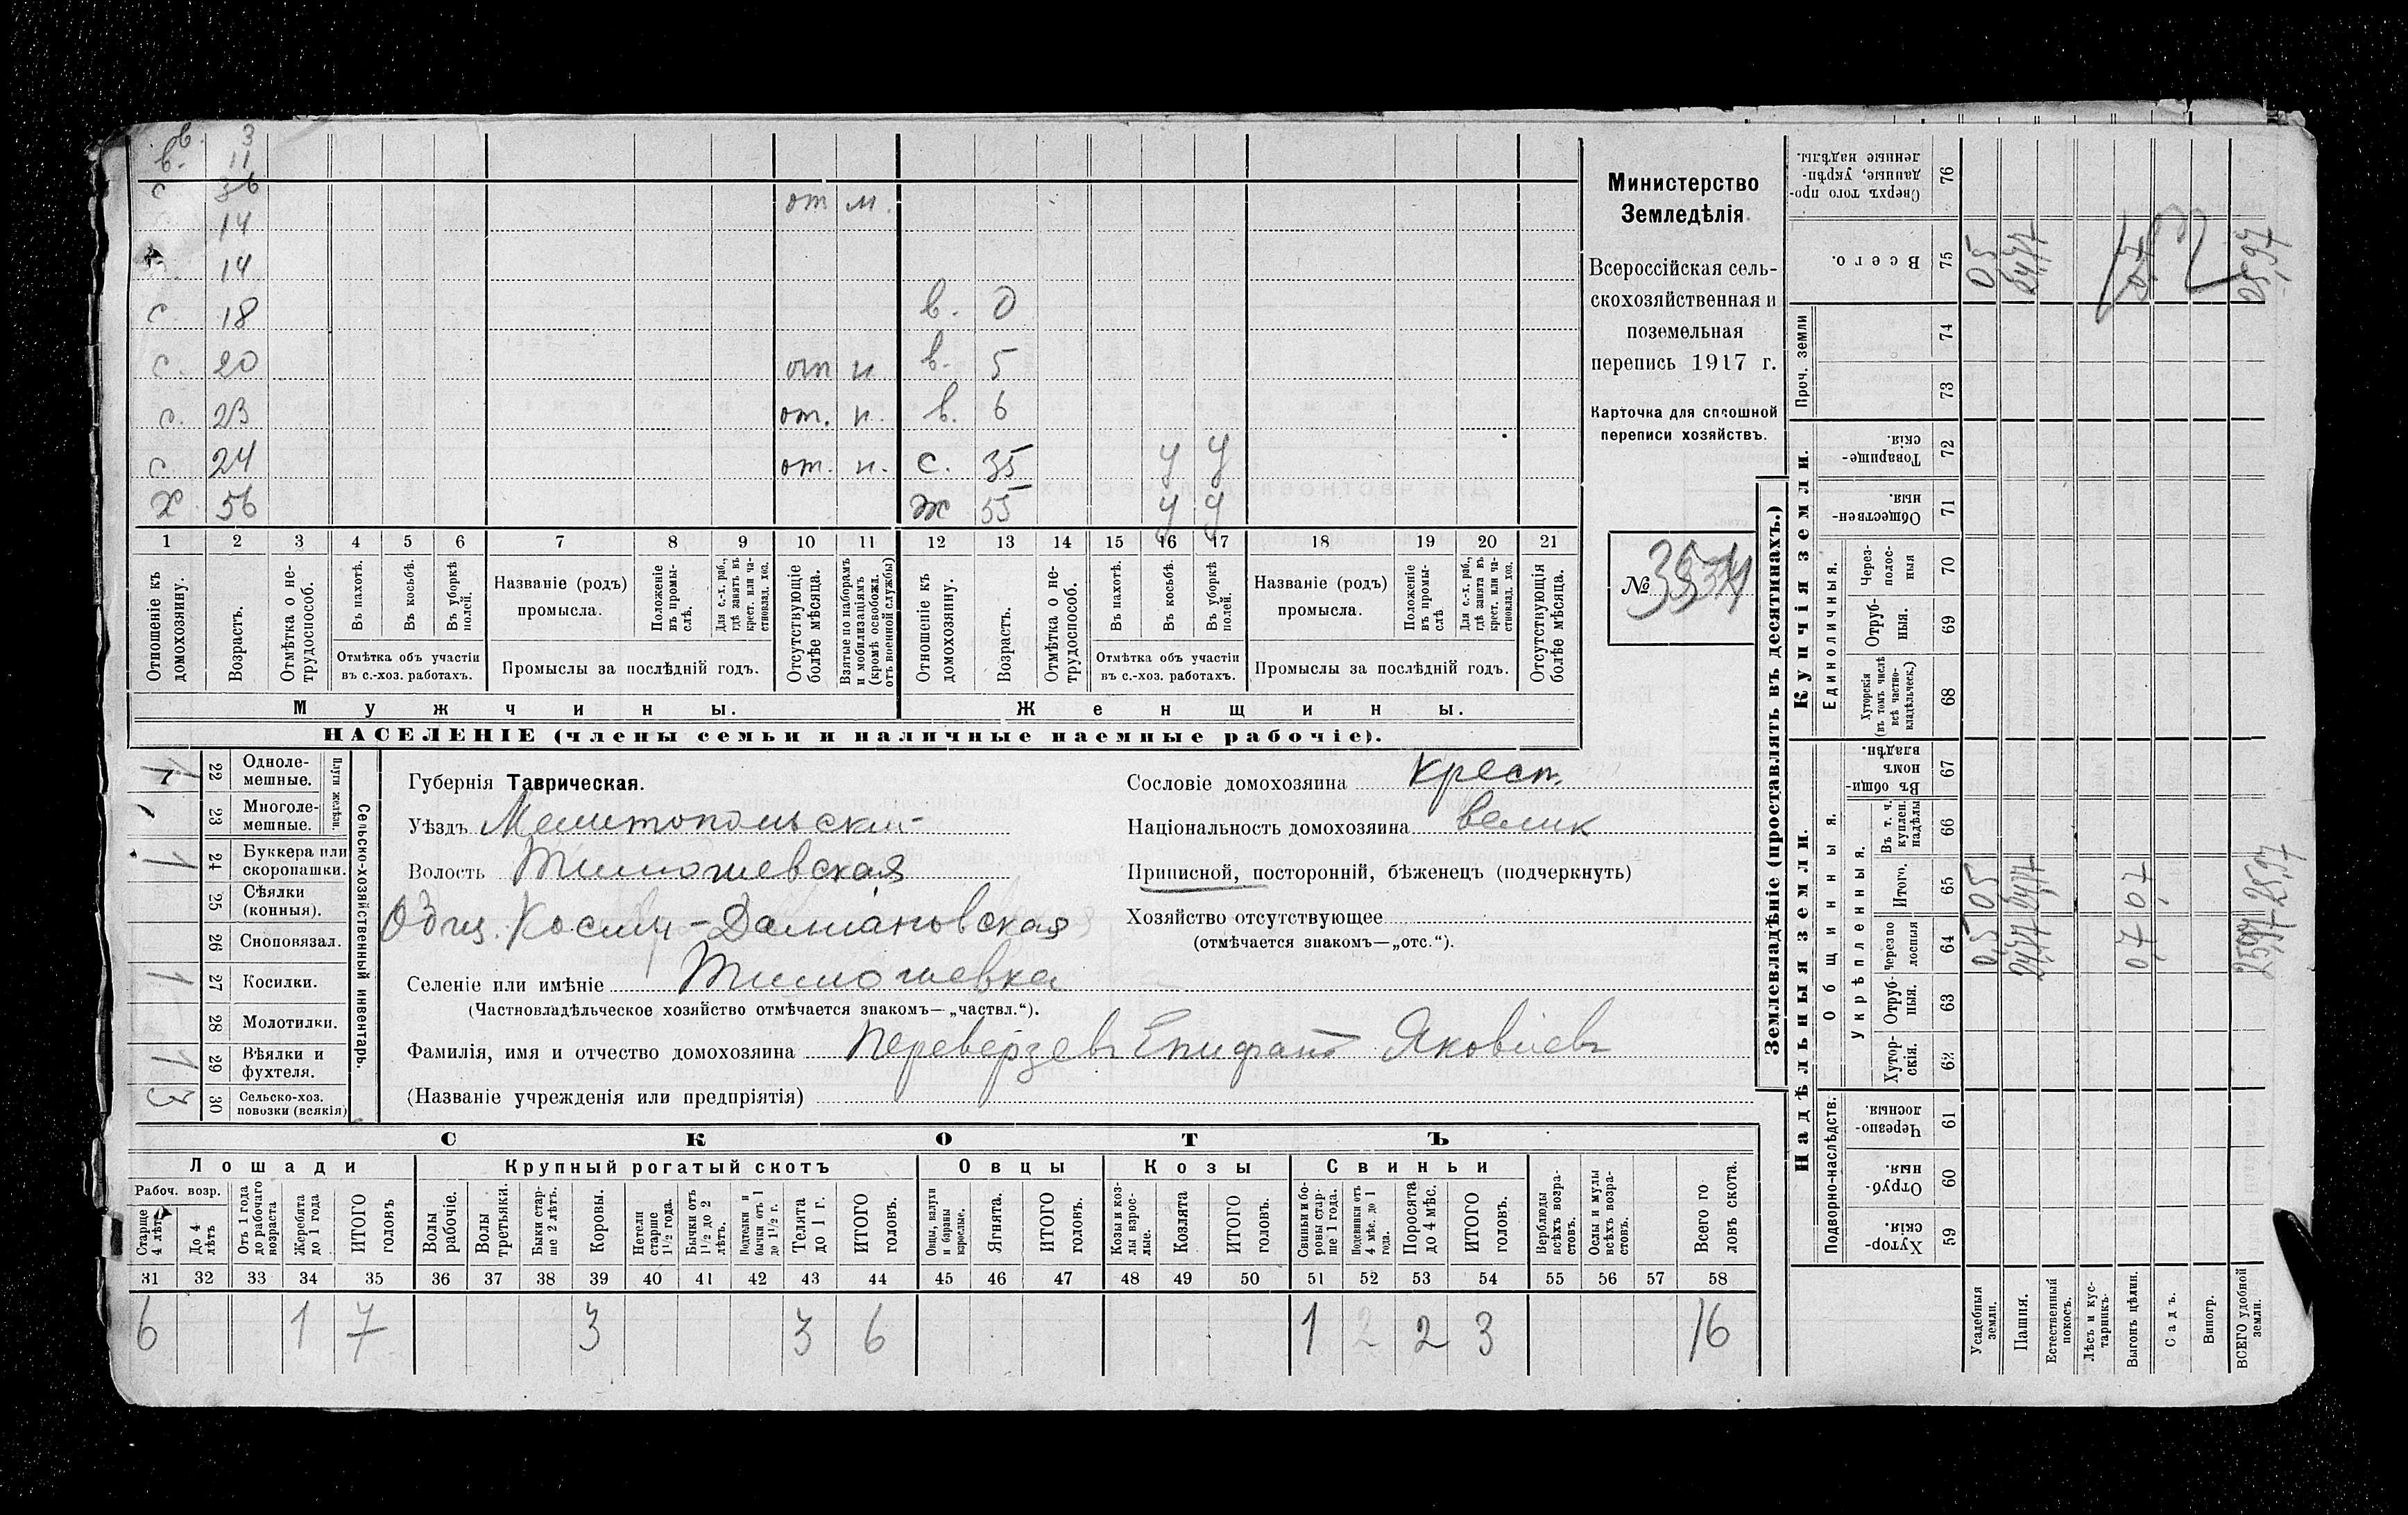 в. 3
в. 11
с 36 от м.
14
14
с 18 в. 0
с. 20 от н в. 5
с. 23 от. н. в. 6
с 24 от. н. с. 35 у у
х 56 ж 55 у у
1 2 3 4 5 6 7 8 9 10 11 12 13 14 15 16 17 18 19 20 21
Отношеніе къ домохозяину.
Возрастъ.
Отмѣтка о не-трудоспособ.
Въ пахотѣ.
Въ косьбѣ.
Въ уборкѣ полей.
Отмѣтка объ участіи
въ с.-хоз. работахъ.
Названіе (родъ)
промысла.
Положеніе въ промы-слѣ.
Для с.-х. раб., гдѣ занятъ въ крест. или ча-стновлад. хоз.
Промыслы за послѣдній годъ.
Отсутствующіе болѣе мѣсяца.
Взятые по наборамъ и мобилизаціямъ (кромѣ освобожд. отъ военной службы)
Отношеніе къ домохозяину.
Возрастъ.
Отмѣтка о не-трудоспособ.
Въ пахотѣ.
Въ косьбѣ.
Въ уборкѣ полей.
Отмѣтка объ участіи
въ с.-хоз. работахъ.
Названіе (родъ)
промысла.
Положеніе въ промы-слѣ
Для с.-х. раб., гдѣ занята въ крест. или ча-стновлад. хоз.
Промыслы за послѣдній годъ.
Отсутствующія болѣе мѣсяца.
Мужчины. Женщины.
НАСЕЛЕНІЕ (члены семьи и наличные наемные рабочіе).
Министерство
Земледѣлія
Всероссійская сель-
скохозяйственная и
поземельная
перепись 1917 г.
Карточка для сплошной
переписи хозяйствъ.
№
1 22 Одноле-мешные.
23 Многоле-мешные.
Плуги желѣзн.
1 24 Буккера или скоропашки.
25 Сѣялки (конныя).
26 Сноповязал.
1 27 Косилки.
28 Молотилки.
1 29 Вѣялки и фухтеля.
3 30 Сельско-хоз. повозки (всякія)
Сельско-хозяйственный инвентарь.
Губернія Таврическая.
Уѣздъ Мелитопольский
Волость Тимошевская
Общ. Косми-Даміановская
Селеніе или имѣніе Тимошевка
(Частновладѣльческое хозяйство отмѣчается знакомъ—„частвл.“).
Фамилія, имя и отчество домохозяина Переверзевъ Епифанъ Яковлевъ
(Названіе учрежденія или предпріятія)
Сословіе домохозяина крест.
Національность домохозяина велик
Приписной, посторонній, бѣженец (подчеркнуть)
Хозяйство отсутствующее
(отмѣчается знакомъ—„отс.“).
СКОТЪ
Лошади Крупный рогатый скотъ Овцы Козы Свиньи
Рабоч. возр.
Старше 4 лѣтъ
До 4 лѣтъ
Отъ 1 года до рабочаго возраста
Жеребята до 1 года
ИТОГО головъ
Волы рабочіе.
Волы третьяки.
Быки стар-ше 2 лѣтъ.
Коровы.
Нетели старше 1 1/2 года.
Бычки отъ 1 1/2 до 2 лѣтъ.
Подтелки и бычки отъ 1 до 1 1/2 г.
Телята до 1 г.
ИТОГО головъ.
Овцы, валухи и бараны взрослые.
Ягнята.
ИТОГО головъ.
Козы и коз-лы взрос-лые.
Козлята
ИТОГО головъ.
Свиньи и бо-ровы стар-ше 1 года.
Подсвинки отъ 4 мѣс. до 1 года.
Поросята до 4 мѣс.
ИТОГО головъ.
Верблюды всѣхъ возра-стовъ.
Ослы и мулы всѣхъ возра-стовъ.
Всего го ловъ скота.
31 32 33 34 35 36 37 38 39 40 41 42 43 44 45 46 47 48 49 50 51 52 53 54 55 56 57 58
6 1 7 3 3 6 1 2 2 3 16
Землевладѣніе (проставлять въ десятинахъ.)
Надѣльныя земли. Купчія земли.
Подворно-наслѣдств.
Общинныя.
Укрѣпленныя.
Единоличныя.
Проч. земли
Хутор-скія. 59
Отруб-ныя. 60
Черезпо-лосныя. 61
Хутор-скія. 62
Отруб-ныя. 63
Черезпо лосныя 64
Итого. 65
Въ т. ч. куплен. надѣлы 66
Въ общи номъ владѣн. 67
Хуторскія (въ томъ числѣ всѣ частно-владѣльческ.) 68
Отруб-ныя. 69
Через-полос-ныя 70
Обществен-ныя. 71
Товарище-скія. 72
73
74
Всего. 75
Сверхъ того про-данные, укрѣп-ленные надѣлы. 76
Усадебныя земли. 05 05 05
Пашня. 24,77 24,77 24,77
Естественный покосъ.
Лѣсъ и кус-тарникъ.
Выгонъ цѣлин. 0,7 0,7
Садъ.
Виногр.
ВСЕГО удобной земли. 25,97 25,97 25,97